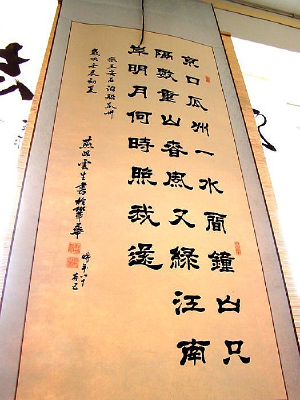 京口瓜州一水間鐘山只
隔數重山春風又綠江南
岸明月何時照我還
王安石泊船瓜州
歲次壬辰初夏
雲生書於華
時年八十